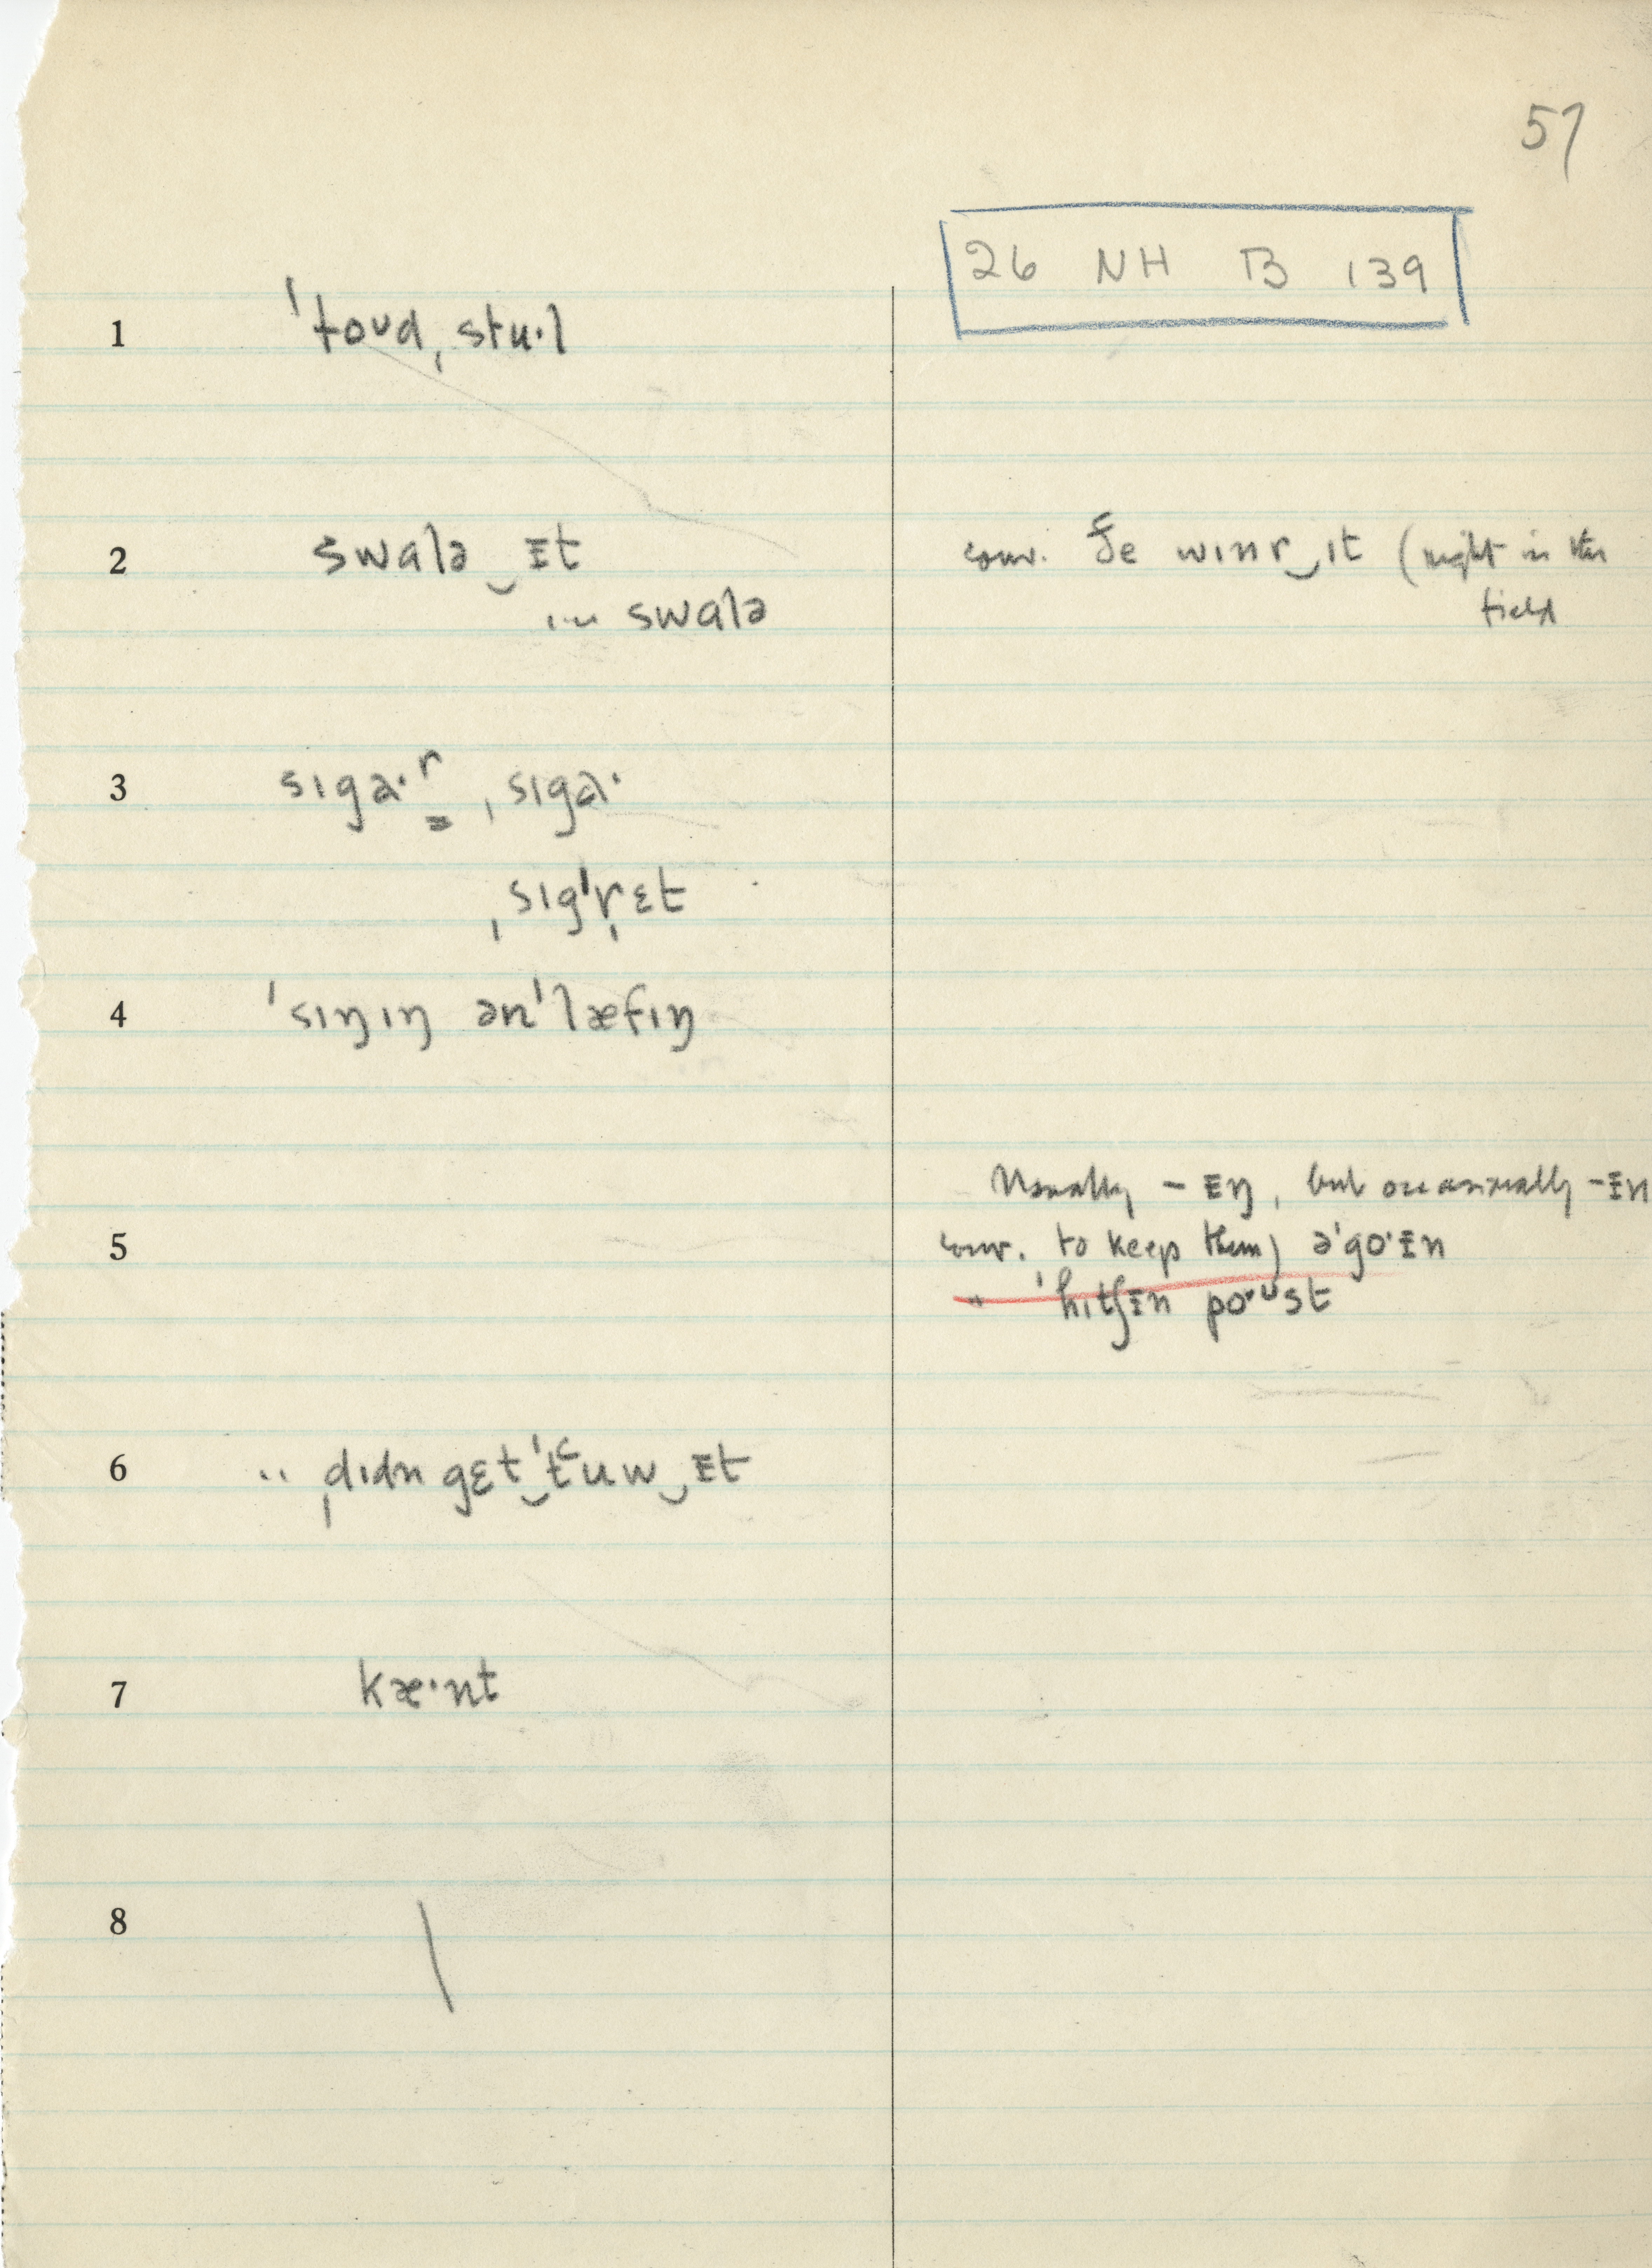 57
26 NH B 139
1 ˈtoʊdˌstu·l
2 swalə‿ɪt
swalə
conv. ðe wɪnr‿ɪt (right in the
field
3 sɪga·r, ˌsɪga·
ˌsɪgˈr̩ɛt
4 ˈsɪŋɪŋ ənˈlæfɪŋ
Usually – ɪŋ, but occasionally –ɪn
5 conv. to keep them) əˈgo·ɪn
" ˈhɪtʃɪn po·ʊst
6 .. ˌdɪdn gɛt‿ˈtʿuw‿ɪt
7 kæ·nt
8